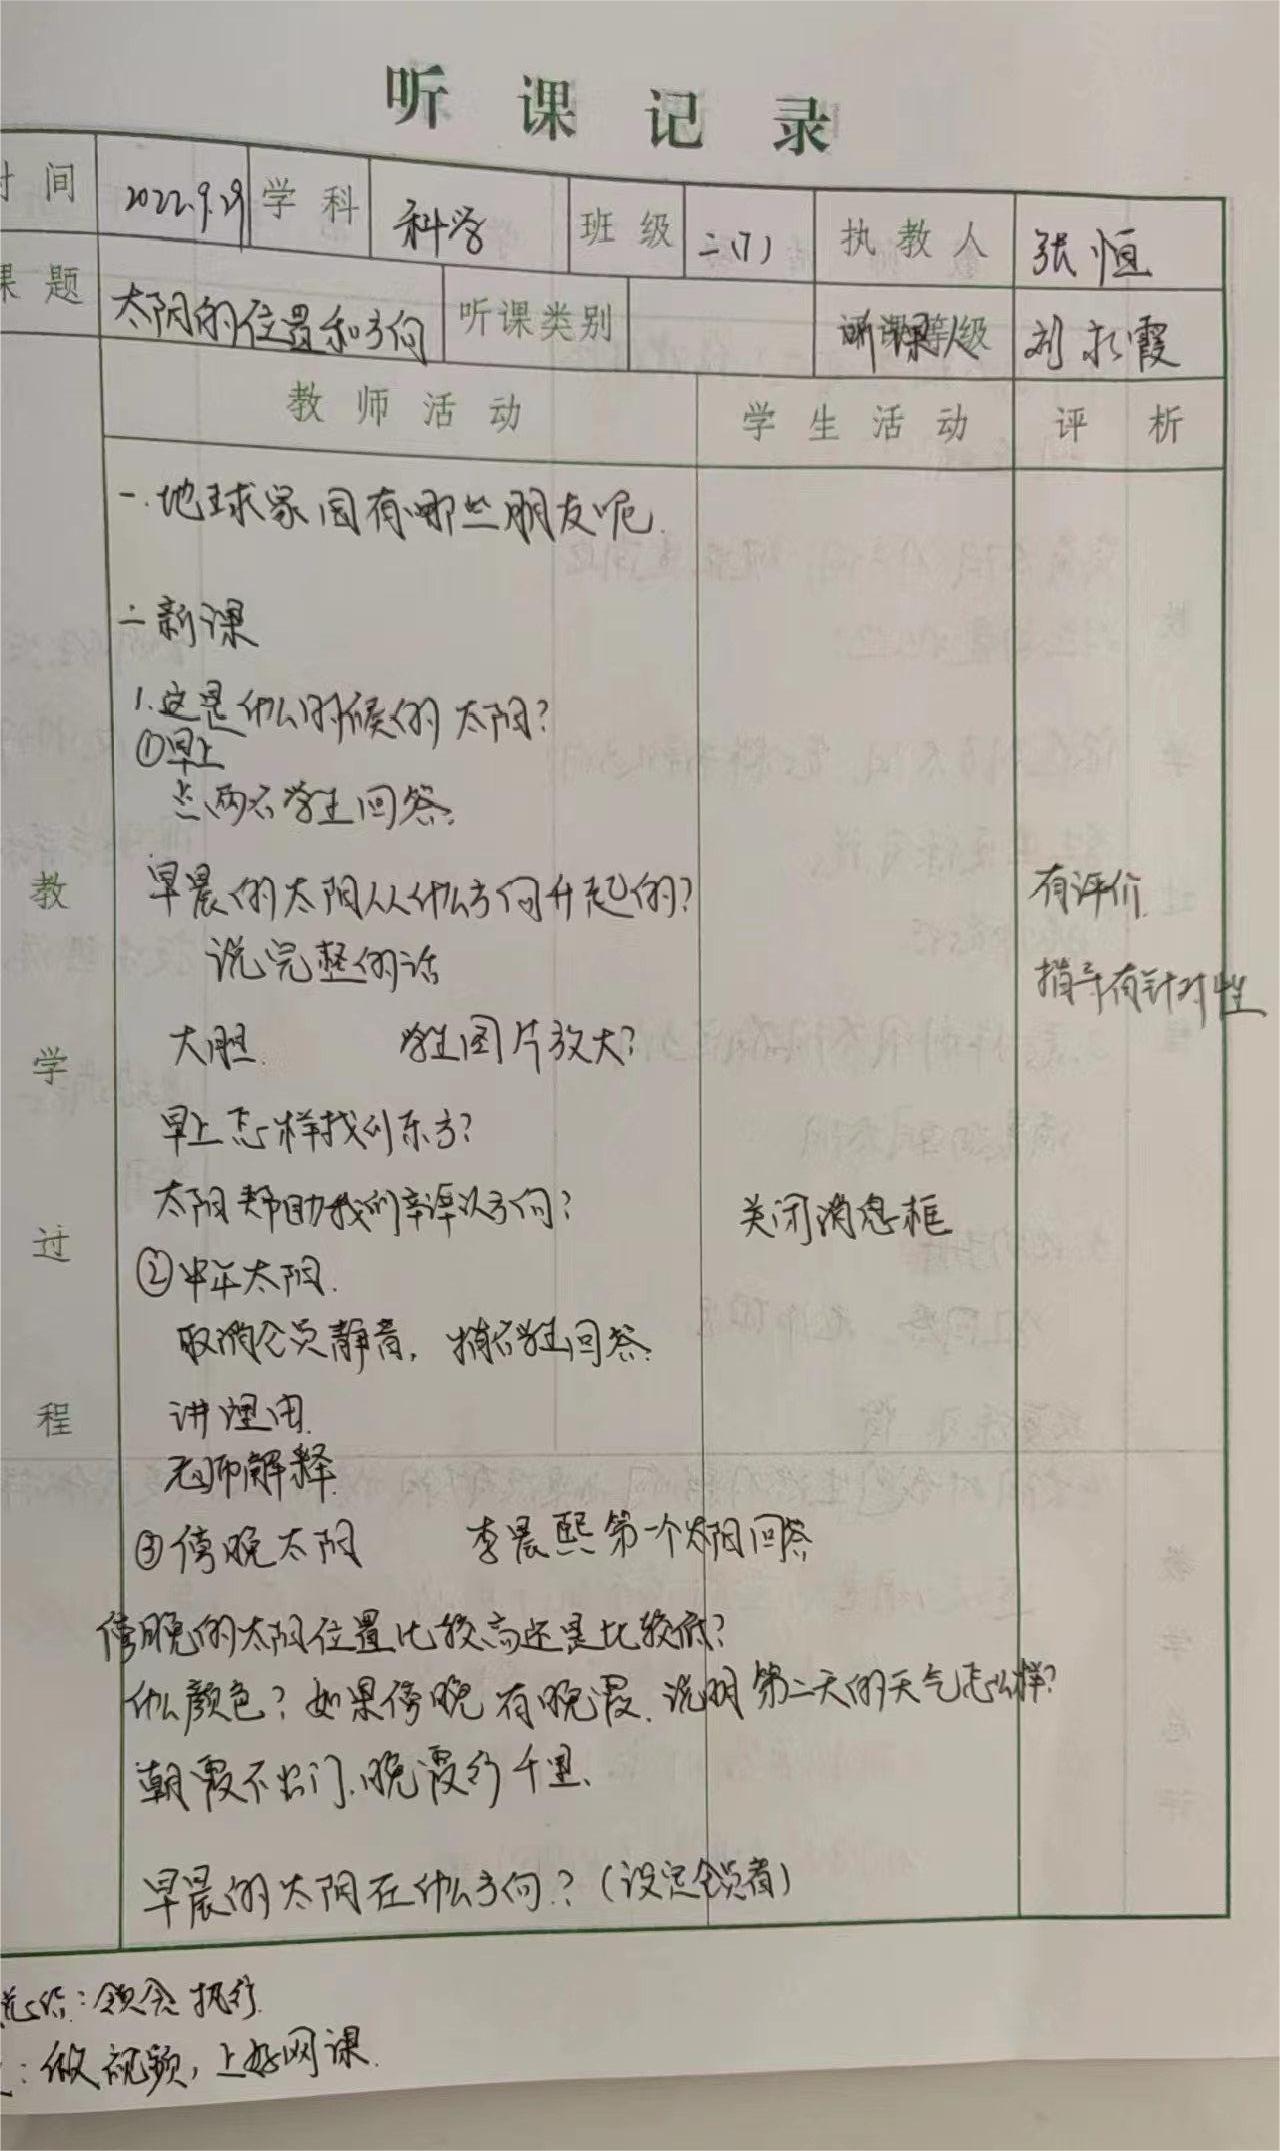 听课记录
时间 2022.9.29 学科 科学 班级 二(7) 执教人 张恒
课题 太阳的位置和方向 听课类别 听课人 刘永霞
教师活动 学生活动 评析
一.地球家园有哪些朋友呢.
二新课
1.这是什么时候的太阳?
①早上
点两名学生回答.
早晨的太阳从什么方向升起的? 有评价.
说完整的话 指导有针对性
大胆. 学生图片放大?
早上怎样找到东方?
太阳帮助我们辨认方向? 关闭消息框
②中午太阳.
取消全员静音, 指名学生回答.
讲理由.
老师解释.
③傍晚太阳 李晨熙第一个太阳回答
傍晚的太阳位置比较高还是比较低?
什么颜色? 如果傍晚有晚霞.说明第二天的天气怎么样?
朝霞不出门.晚霞行千里.
早晨的太阳在什么方向.?(设定全员静音)
教学过程
领会执行.
:做视频,上好网课.